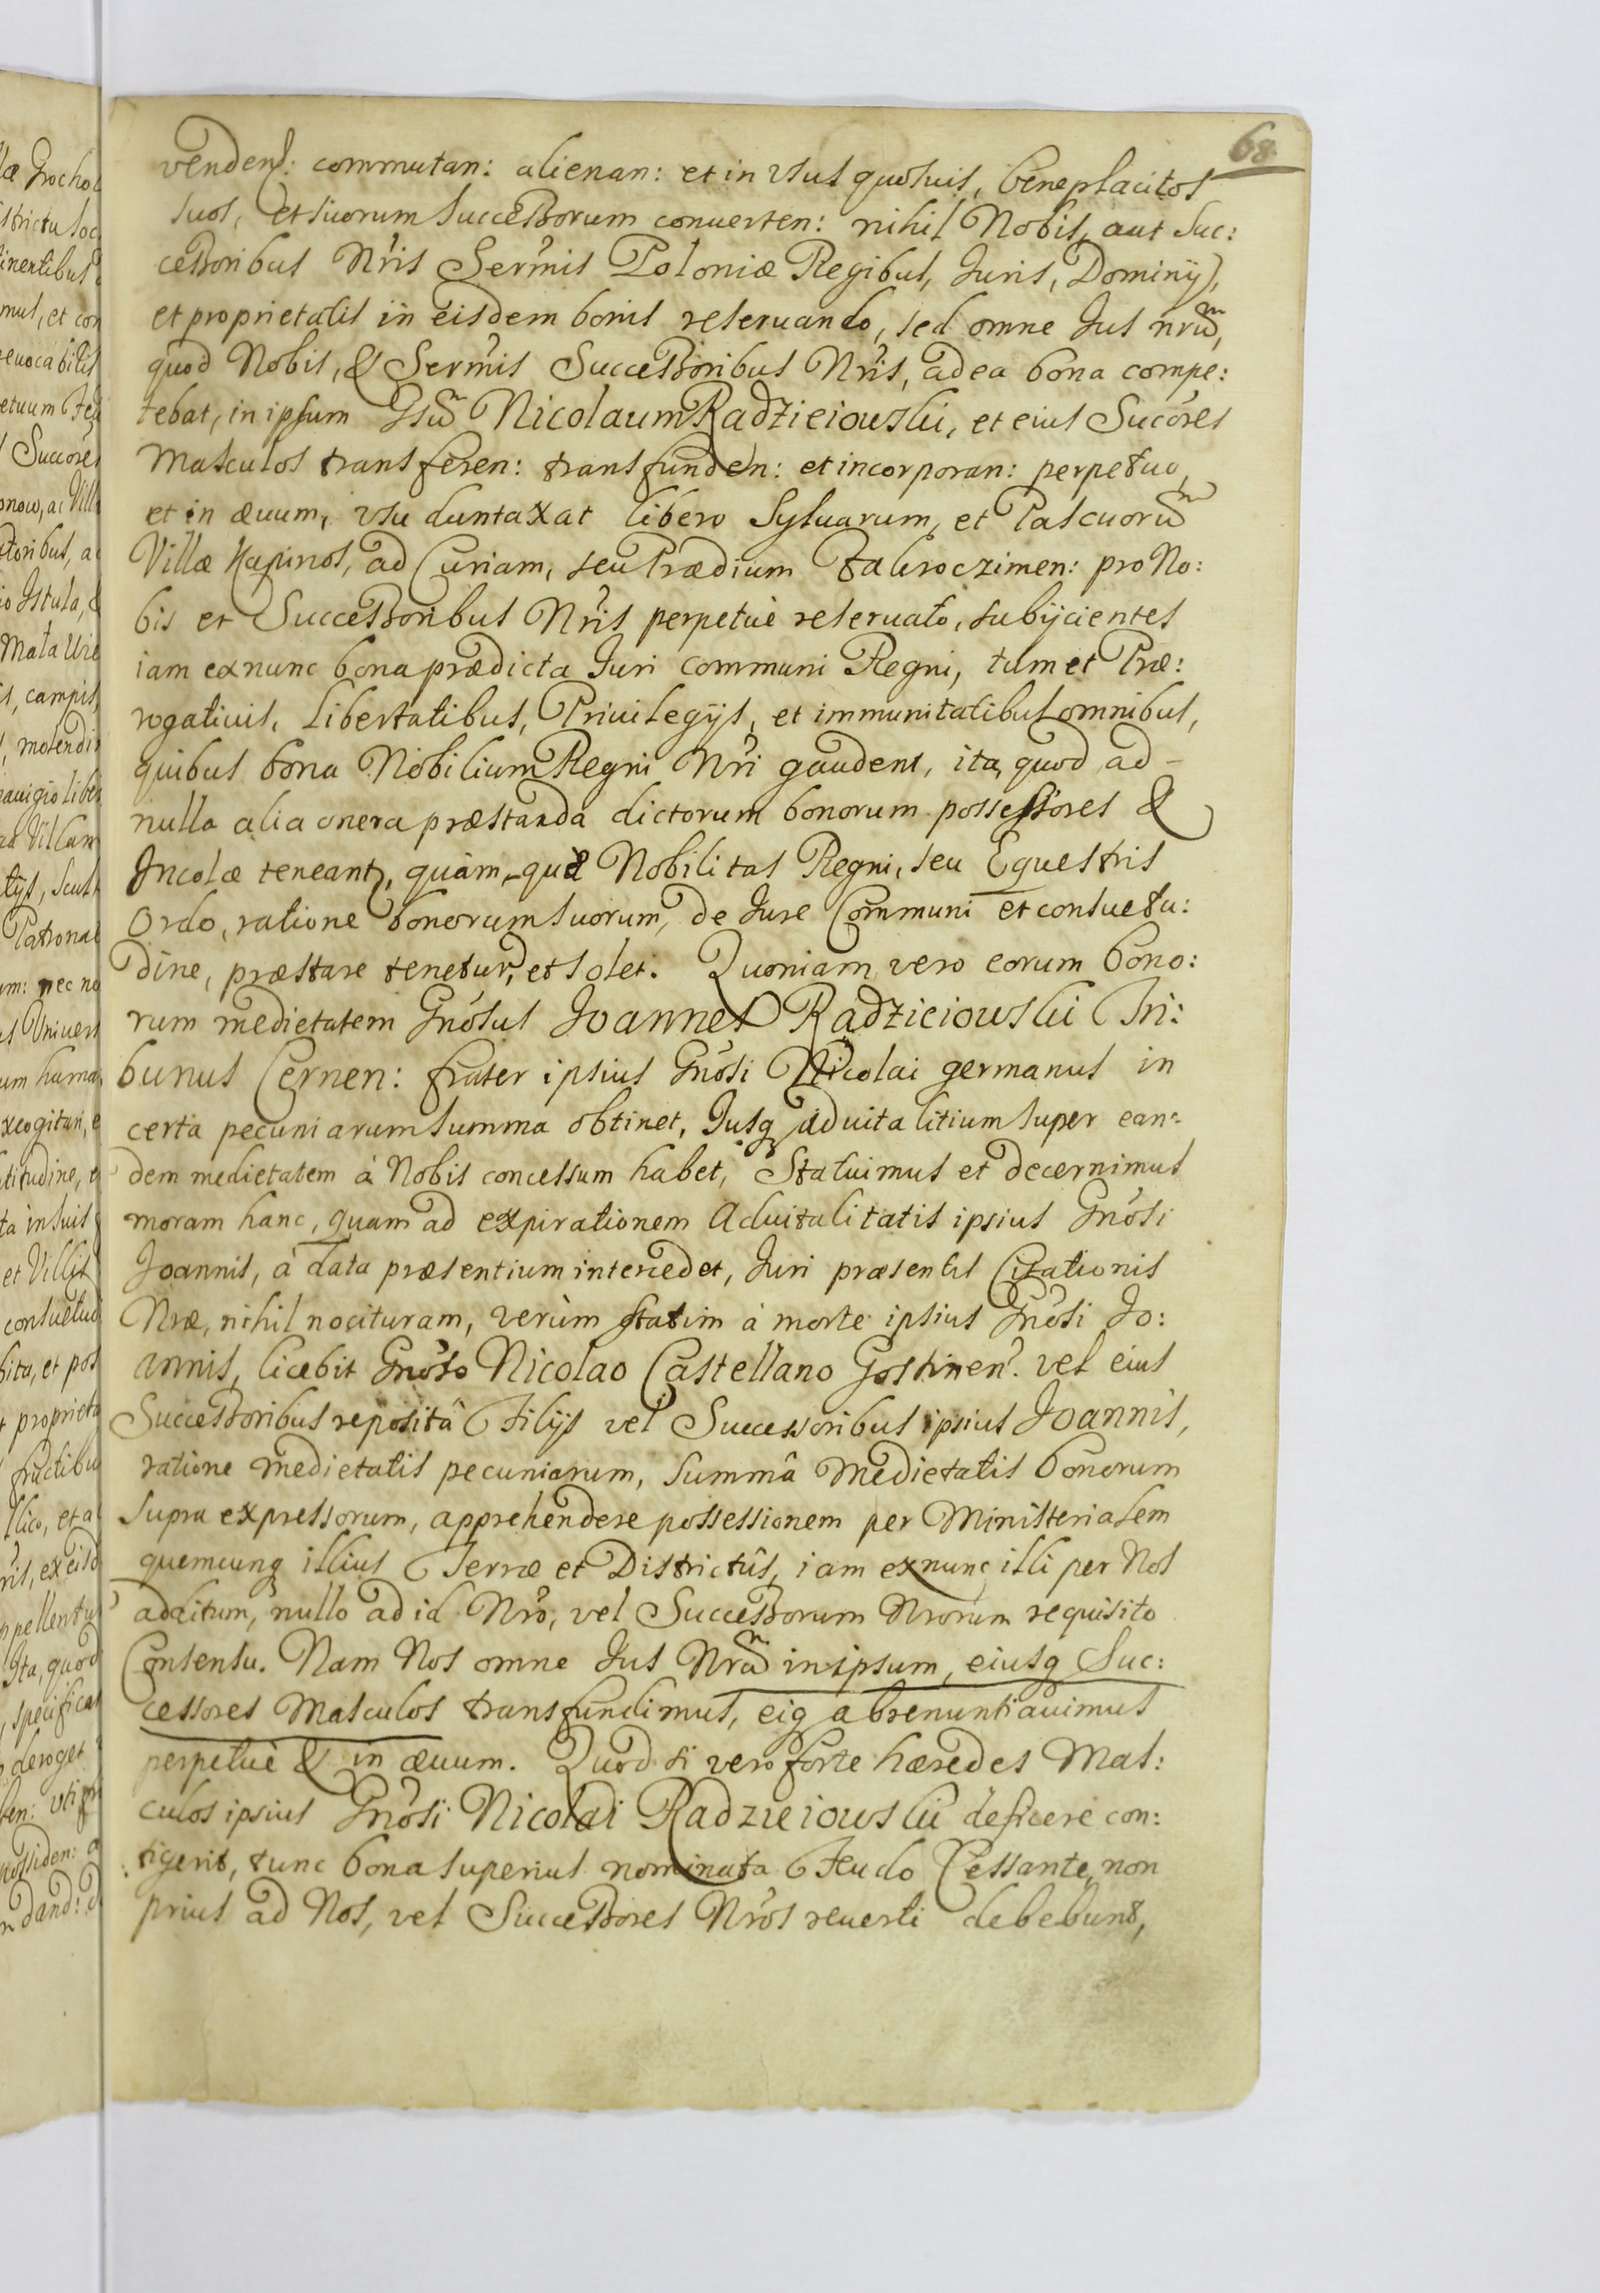 68
vendend: commutan: alienan: et in usus quosuis, beneplacitos
suos, et suorum Successorum conuerten: nihil Nobis, aut Suc:
cessoribus Nris Sermis Poloniæ Regibus, Juris, Dominij,
et proprietatis in eisdem bonis reseruando, sed omne Jus nrum,
quod Nobis, & Sermis Successoribus Nris, ad ea bona compe:
tebat, in ipsum Gsum Nicolaum Radzieiowski, et eius Sucores
Masculos transferen: transfunden: et incorporan: perpetuo,
et in æuum, usu duntaxat libero Syluarum, et Pascuorum
Villæ Kapinos, ad Curiam, seu Prædium Zakroczimen: pro No:
bis et Successoribus Nris perpetuè reseruato, subijcientes
iam ex nunc bona prædicta Juri communi Regni, tum et Præ:
rogatiuis, Libertatibus, Priuilegijs, et immunitatibus omnibus,
quibus bona Nobilium Regni Nri gaudent, ita, quod ad -
nulla alia onera præstanda dictorum bonorum possessores &
Incolæ teneantr, quàm, quæ Nobilitas Regni, seu Equestris
Ordo, ratione bonorum suorum, de Jure Communi et consuetu:
dine, præstare tenetur, et solet. Quoniam vero eorum bono:
rum medietatem Gnosus Joannes Radzieiowski Tri:
bunus Cernen: frater ipsius Gnosi Nicolai germanus in
certa pecuniarum summa obtinet, Jusq aduitalitium super ean:
dem medietatem à Nobis concessum habet, Statuimus et decernimus
moram hanc, quam ad expirationem Aduitalitatis ipsius Gnosi
Joannis, à data præsentium intercedet, Juri præsentis Citationis
Nræ, nihil nocituram, verùm statim à morte ipsius Gnosi Jo:
annis, licebit Gnoso Nicolao Castellano Gostinen: vel eius
Successoribus repositâ Filijs vel Successoribus ipsius Joannis,
ratione medietatis pecuniarum, summâ medietatis bonorum
supra expressorum, apprehendere possessionem per Ministerialem
quemcunq illius Terræ et Districtûs, iam ex nunc illi per Nos
additum, nullo ad id Nro, vel Successorum Nrorum requisito
Consensu. Nam Nos omne Jus Nrum in ipsum, eiusq Suc:
cessores Masculos transfundimus, eiq abrenuntiauimus
perpetuè & in æuum. Quod si vero forte hæredes Mas:
culos ipsius Gnosi Nicolai Radzieiowski deficere con:
tigerit, tunc bona superius nominata Feudo Cessante, non
prius ad Nos, vel Successores Nros reuerti debebunt,